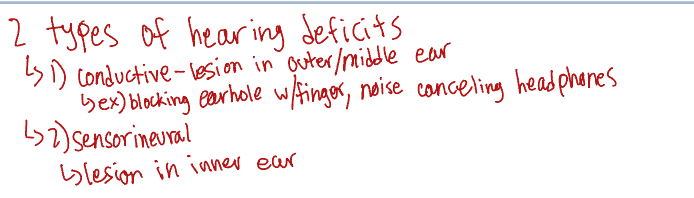 2 types of hearing deficits
↳ 1) conductive - lesion in outer/middle ear
↳ ex) blocking earhole w/finger, noise canceling headphones
↳ 2) sensorineural
↳ lesion in inner ear